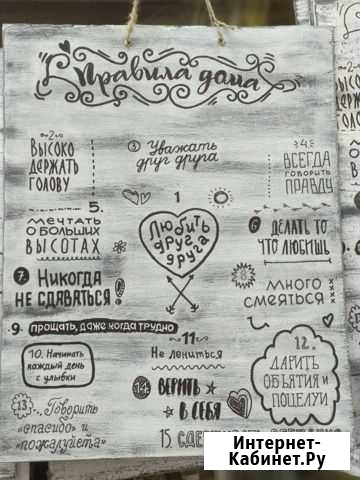 Правила дома
-2-
Высоко
держать
голову
3 Уважать
друг друга
.4.
Всегда
говорить
правду
5.
мечтать
о больших
высотах
1
Любить
друг
друга
6 делать то
что любишь
7 Никогда
не сдаваться!
8
много
смеяться
9 прощать, даже когда трудно
10. Начинать
каждый день
с улыбки
-11-
Не лениться
12.
дарить
объятия и
поцелуи
13 Говорить
«спасибо» и
«пожалуйста»
14 верить
в себя
15.
Интернет-
Кабинет.Ру